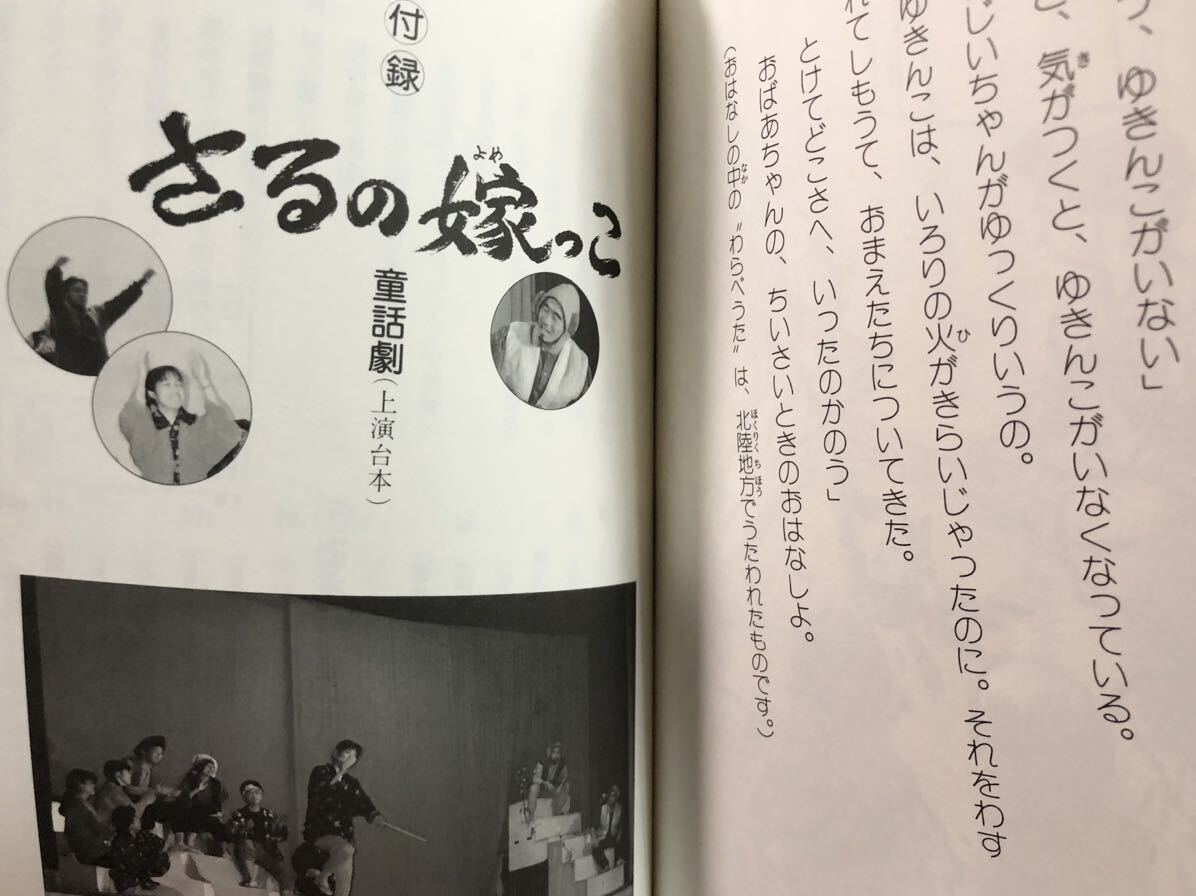 う、ゆきんこがいない」
と、気がつくと、ゆきんこがいなくなっている。
じいちゃんがゆっくりいうの。
ゆきんこは、いろりの火がきらいじゃったのに。それをわす
れてしもうて、おまえたちについてきた。
とけてどこさへ、いったのかのう」
おばあちゃんの、ちいさいときのおはなしよ。
(おはなしの中の〝わらべうた〟は、北陸地方でうたわれたものです。)
付録
さるの嫁っこ
童話劇(上演台本)